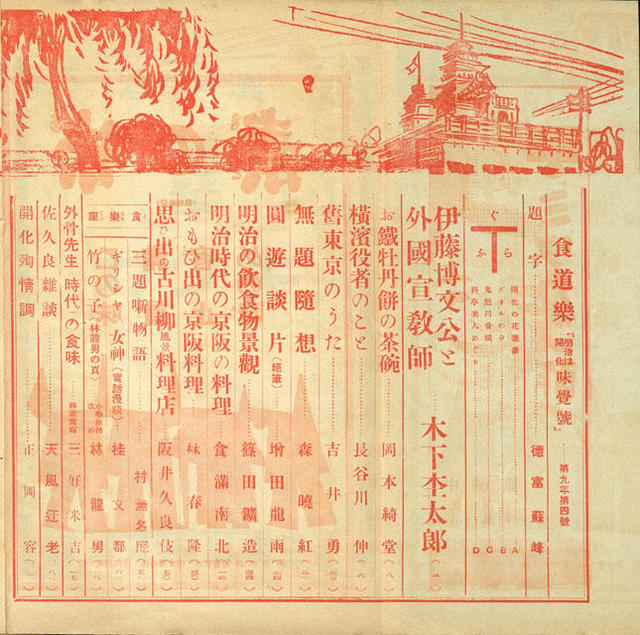 食道樂『明治は開化味覺號』 第九年第四號
題字 德富蘇峰
ぐらふ
開化の花園 A
グリルの夕 B
鬼怒川 C
料亭美人めぐり D
伊藤博文公と外國宣敎師 木下杢太郎
お鐵牡丹餅の茶碗 岡本綺堂 (八)
橫濱役者のこと 長谷川伸 (六)
舊東京のうた 吉井勇
無題隨想 森曉紅
圓遊談片(絕筆) 增田龍雨
明治の飮食物景觀 篠田鑛造
明治時代の京阪の料理 食滿南北
おもひ出の京阪料理 林春隆
思ひ出の古川柳風景料理店 阪井久良伎
食樂座
三題噺物語 村無名庵
ギリシャ女神(電話漫談) 桂文都
竹の子(林龍男の頁) 小春團治改め 林龍男
外骨先生時代の食味 三好米吉
佐久良雜談 天風江老
開化殉情調 正岡容